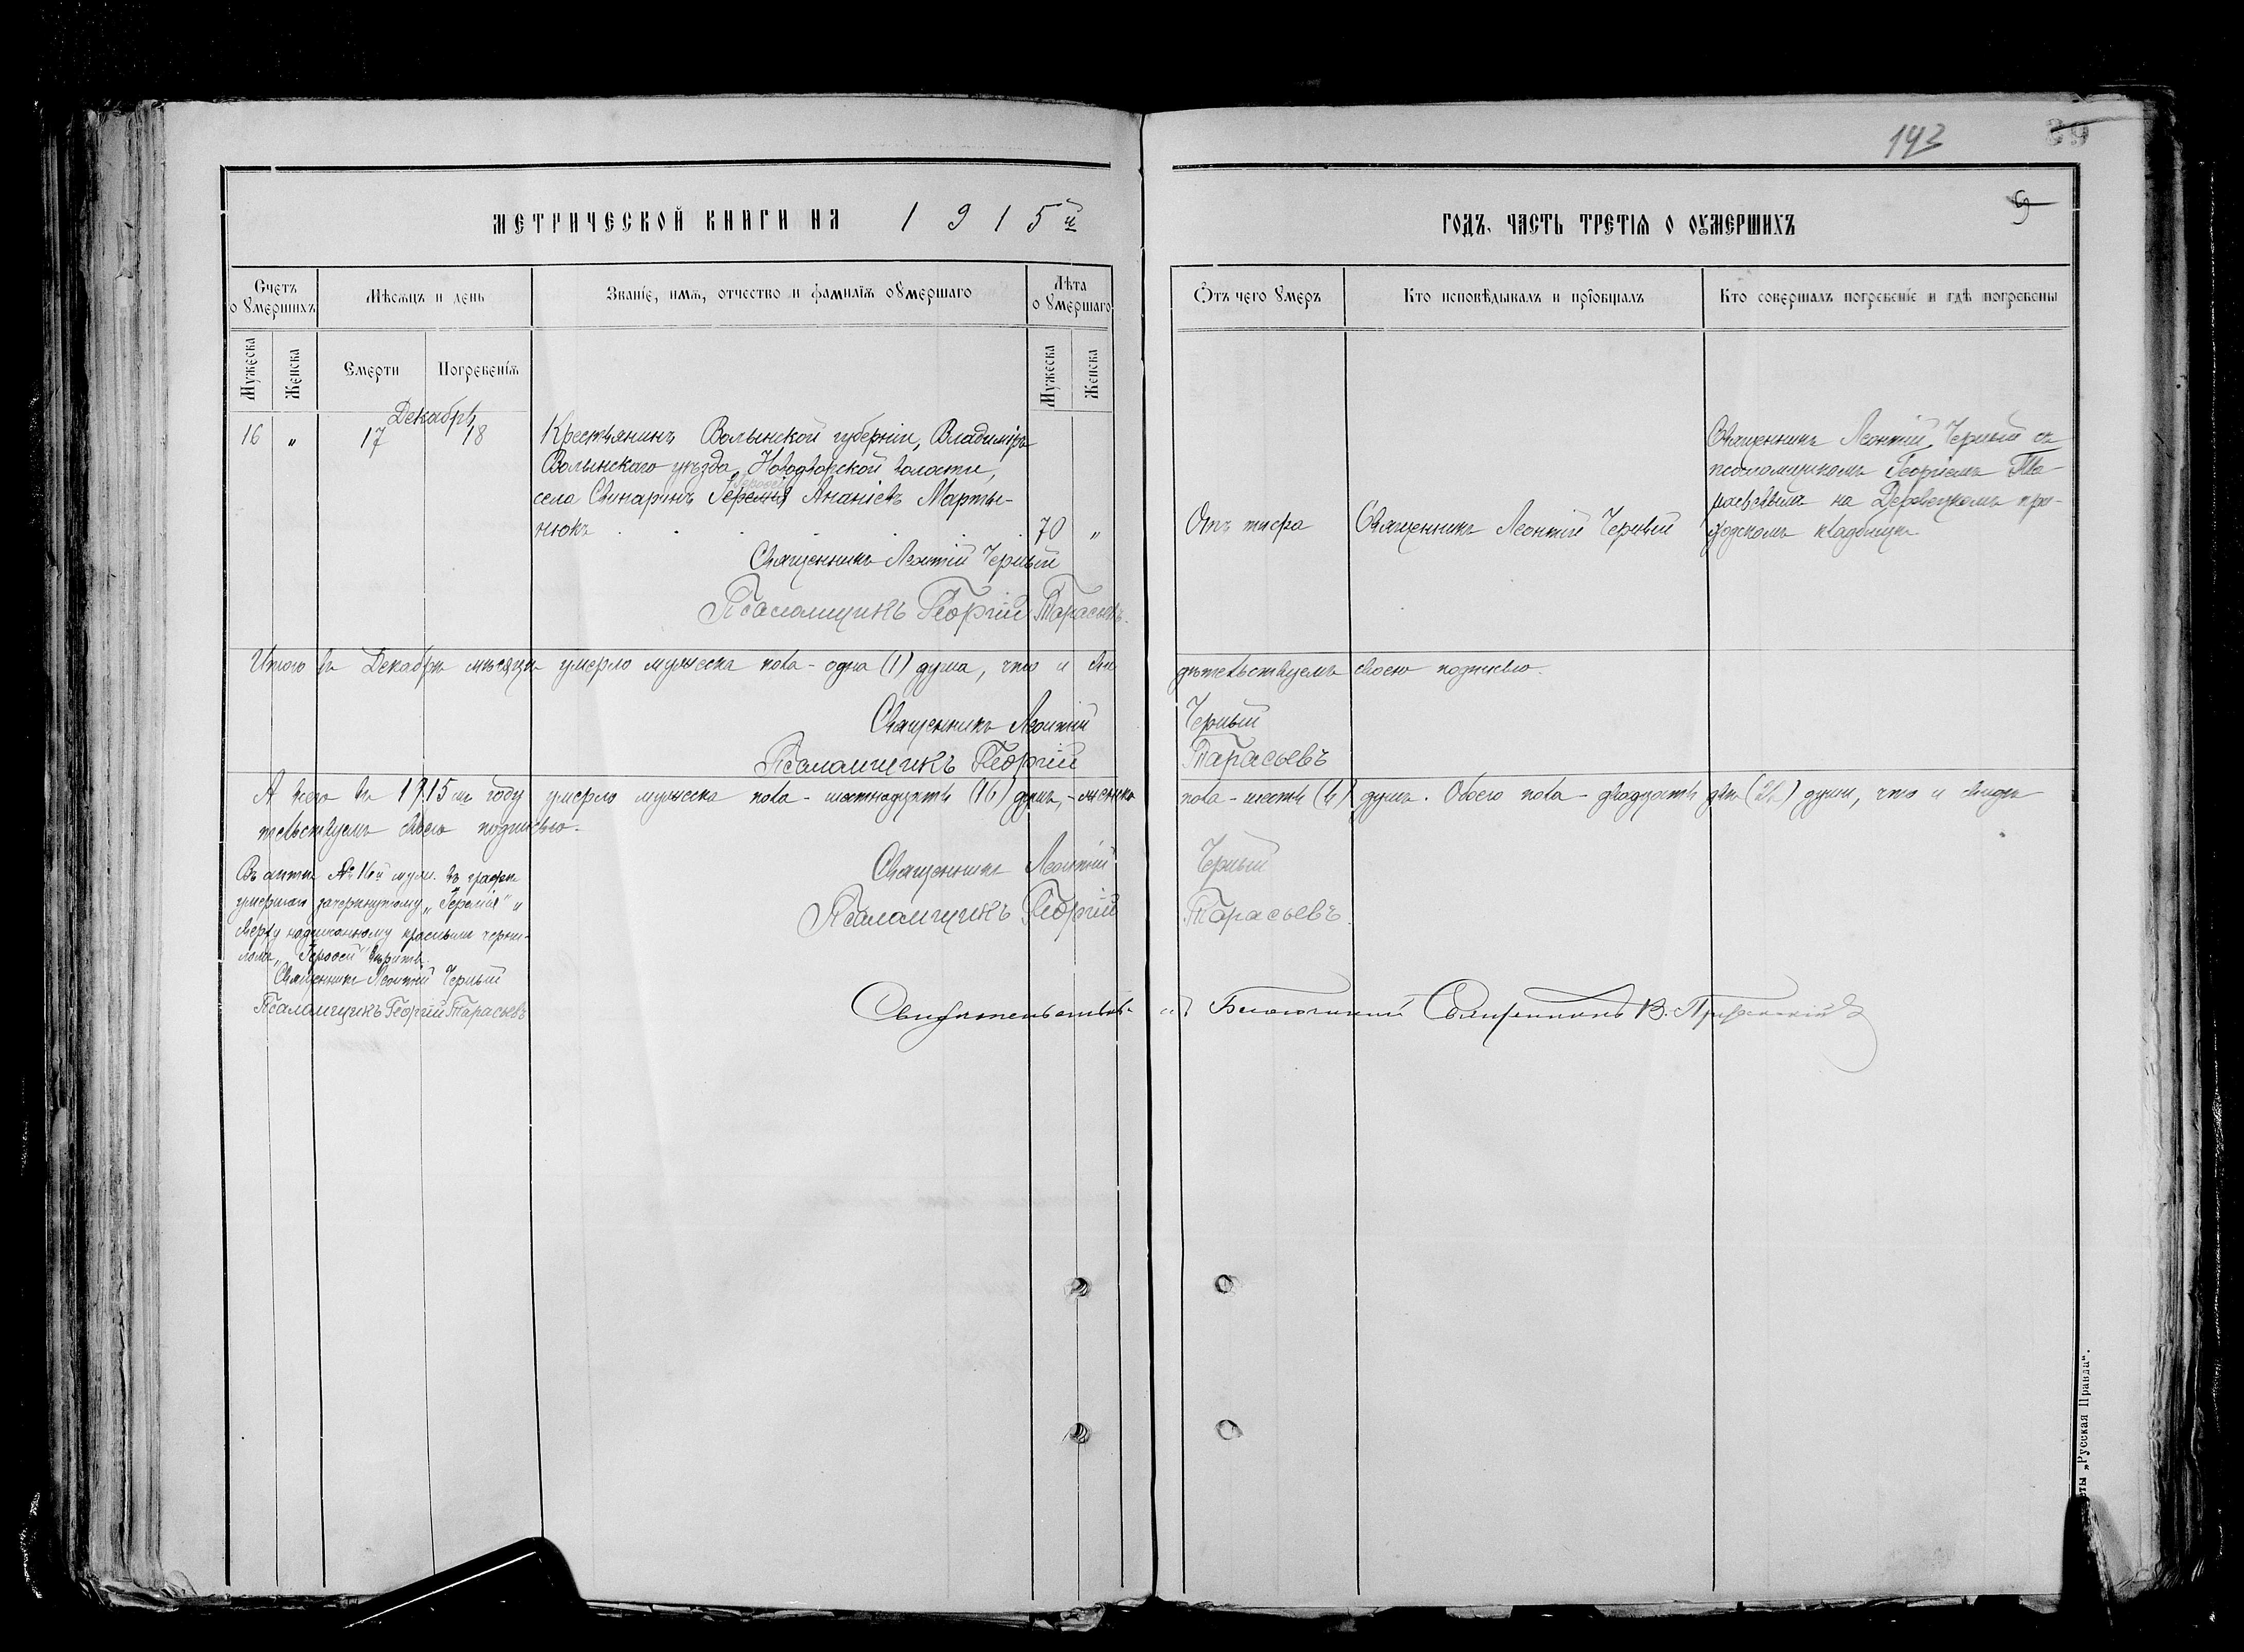 143
89
9
МЕТРИЧЕСКОЙ КНИГИ НА 1915й
ГОДЪ, ЧАСТЬ ТРЕТІѦ О ОУМЕРШИХЪ
Счетъ о ꙋмершихъ
Мѣсѧцъ и день
Званіе, имѧ, отчество и фамиліѧ оꙋмершаго
Лѣта оꙋмершаго
Ѿтъ чего ꙋмеръ
Кто исповѣдывалъ и пріобщалъ
Кто совершалъ погребеніе и гдѣ погребены
Мужеска
Женска
Смерти
Погребеніѧ
Мужеска
Женска
Декабрь
16 " 17 18
Крестьянинъ Волынской губерніи, Владиміръ-
Волынскаго уѣзда, Новодворской волости,
села Свинаринъ Іеремія Ананіевъ Марты-
нюкъ 70 "
Отъ тифа
Священникъ Леонтій Черный
Священникъ Леонтій Черный съ
псаломщикомъ Георгіемъ Та-
расьевымъ на приходскомъ кладбищѣ
Священникъ Леонтій Черный
Псаломщикъ Георгій Тарасьевъ.
Итого въ Декабрѣ мѣсяцѣ умерло мужеска пола - одна (1) душа, что и сви
дѣтельствуемъ своею подписью.
Священникъ Леонтій Черный
Псаломщикъ Георгій Тарасьевъ
А всего въ 1915мъ году умерло мужеска пола - шестнадцать (16) душъ, - женска
пола - шесть (6) душъ. Обоего пола - двадцать двѣ (22) души, что и свидѣ
тельствуемъ своею подписью.
Священникъ Леонтій Черный
Псаломщикъ Георгій Тарасьевъ
Въ актѣ № 16й муж. въ графѣ
умершаго зачеркнутому „Іеремія" и
сверху надписанному красными черни-
лами вѣрить.
Священникъ Леонтій Черный
Псаломщикъ Георгій Тарасьевъ
Благочинный Священникъ В.
„Русская Правда".